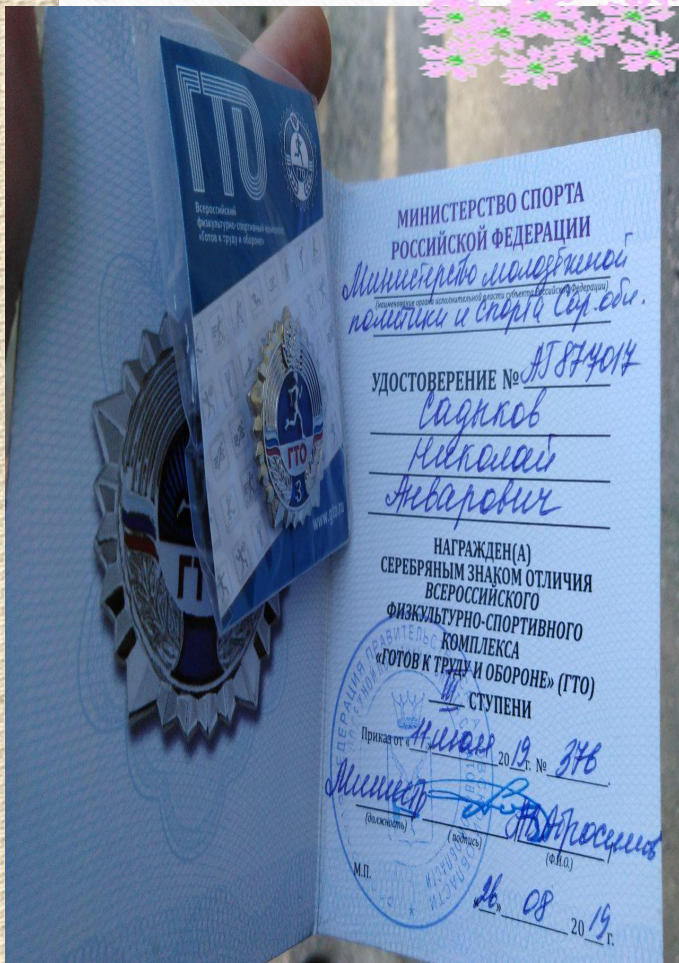 ГТО
Всероссийский
физкультурно-спортивный комплекс
«Готов к труду и обороне»
ГТО
3
www.gto.ru
ГТ
МИНИСТЕРСТВО СПОРТА
РОССИЙСКОЙ ФЕДЕРАЦИИ
Министерство молодёжной
(наименование органа исполнительной власти субъекта Российской Федерации)
политики и спорта Сар. обл.
УДОСТОВЕРЕНИЕ № АГ877017
Садыков
Николай
Анварович
НАГРАЖДЕН(А)
СЕРЕБРЯНЫМ ЗНАКОМ ОТЛИЧИЯ
ВСЕРОССИЙСКОГО
ФИЗКУЛЬТУРНО-СПОРТИВНОГО
КОМПЛЕКСА
«ГОТОВ К ТРУДУ И ОБОРОНЕ» (ГТО)
III СТУПЕНИ
Приказ от «11» июля 2019 г. № 376
Министр
(должность) (подпись) (Ф.И.О.)
М.П.
«26» 08 2019 г.